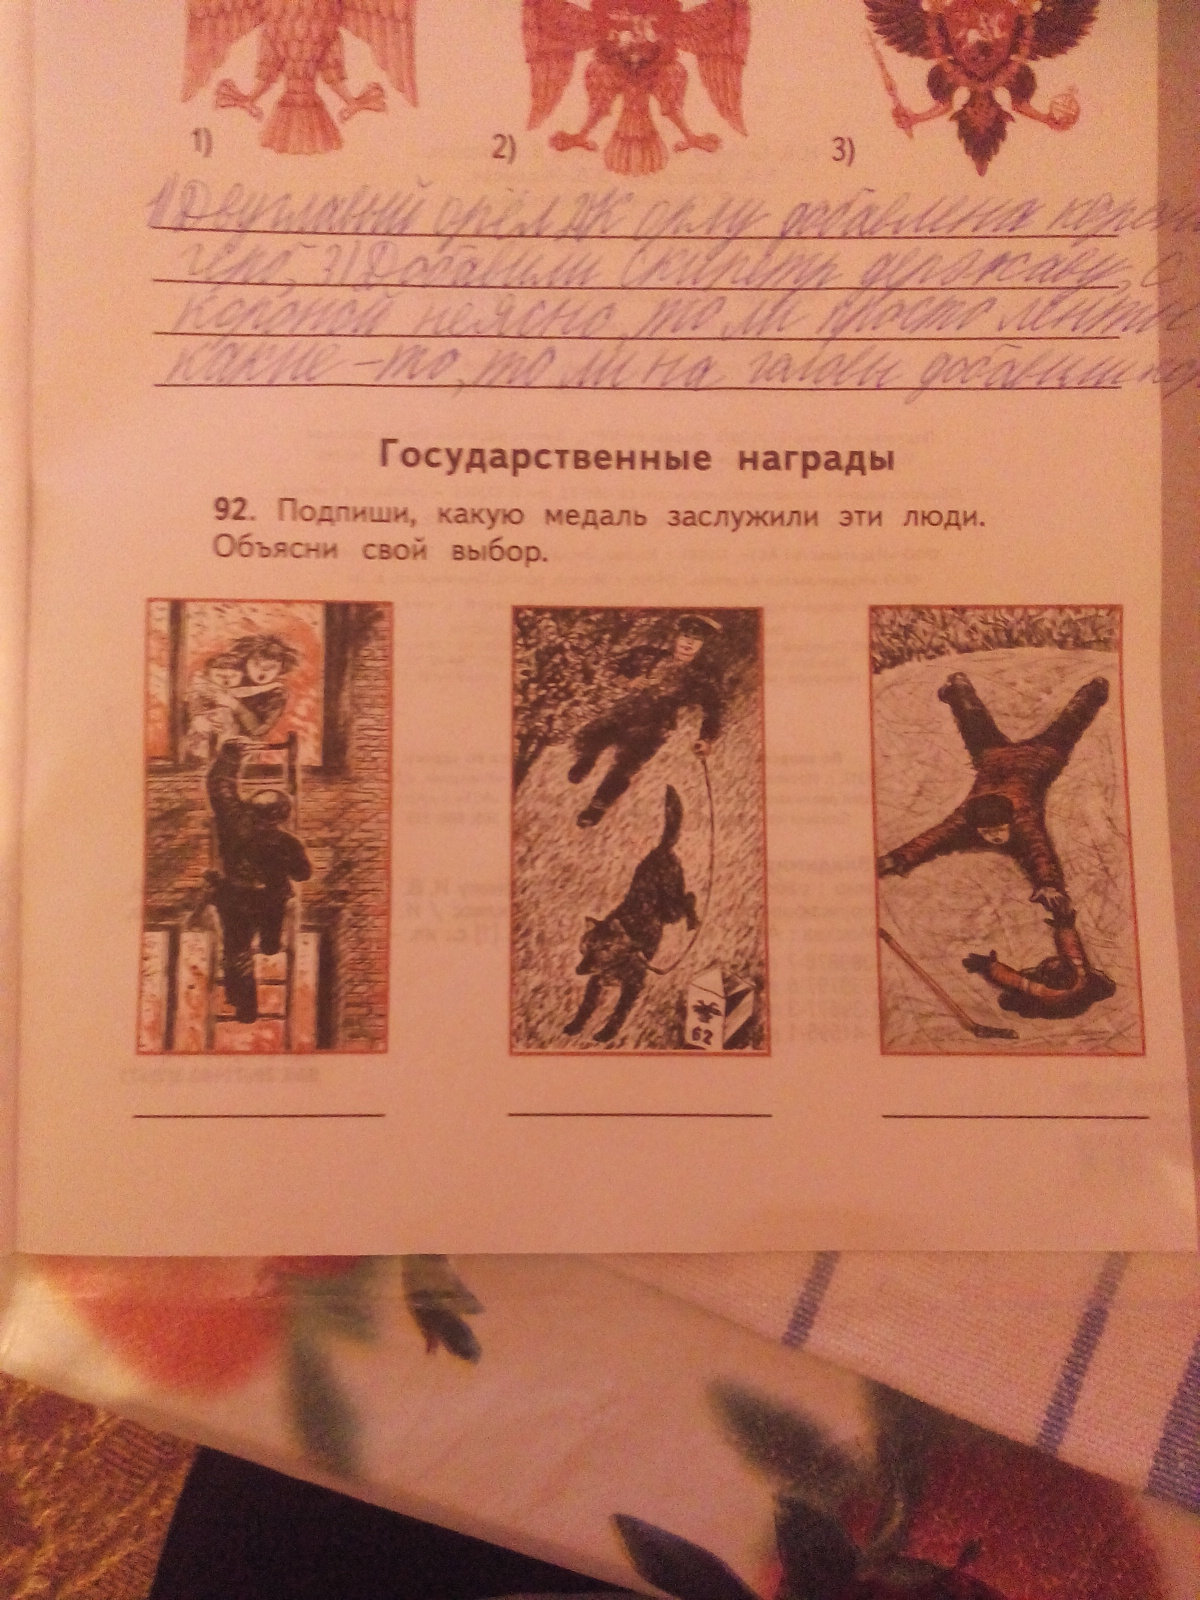 1) 2) 3)
1) Двуглавый орёл 2) К орлу добавлена
герб, 3) Добавили скипетр державу, с
короной неясно, то ли просто ленты
какие-то, то ли на головы добавили
Государственные награды
92. Подпиши, какую медаль заслужили эти люди.
Объясни свой выбор.
62